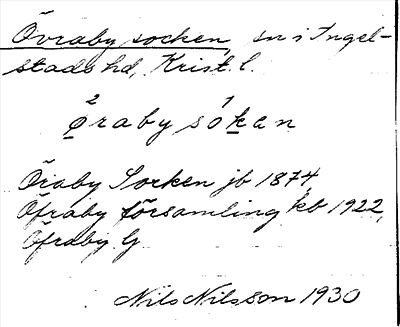 Övraby socken, sn i Ingel-
stads hd, Krist. l.
2 1
øraby sókan
Öraby Socken jb 1874,
Öfraby församling kb 1922,
Öfraby G
Nils Nilsson 1930